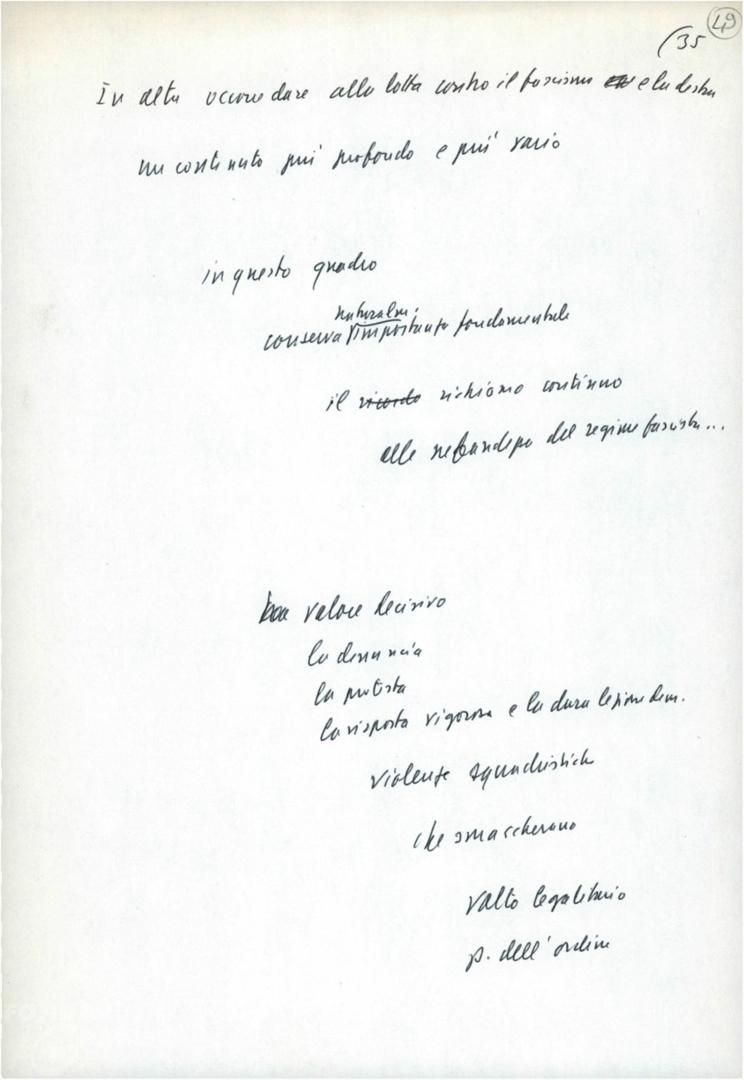 49
(35
In altre occorre dare alla lotta contro il fascismo e la destra
un contenuto più profondo e più vario
in questo quadro
naturalm.
conserva importanza fondamentale
il ricordo richiamo continuo
alle nefandezze del regime fascista...
ha valore decisivo
la denuncia
la protesta
la risposta vigorosa e la dura lezione dem.
violenze squadristiche
che smascherano
volto legalitario
p. dell'ordine